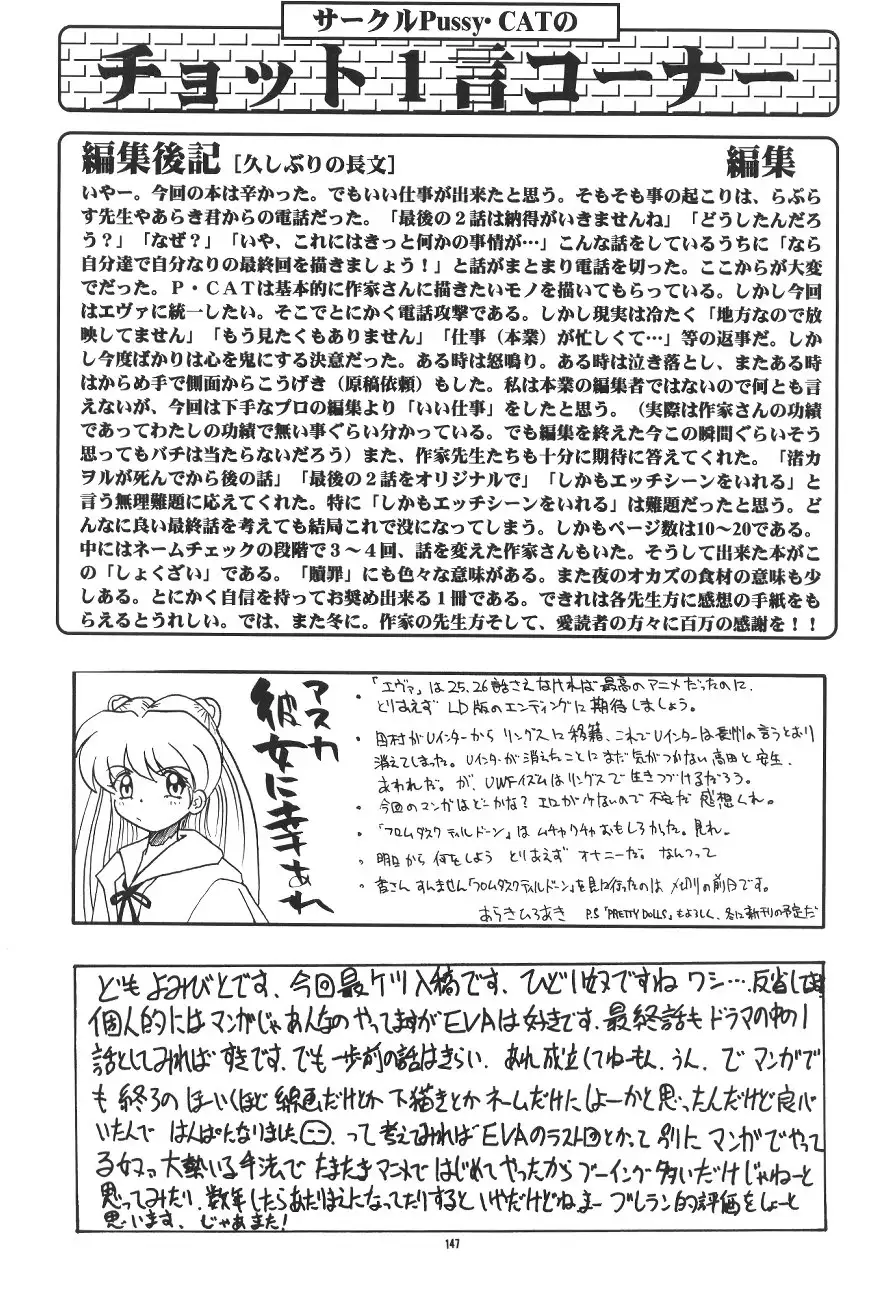 サークルPussy・CATの
チョット1言コーナー
編集後記［久しぶりの長文］　編集
いやー。今回の本は辛かった。でもいい仕事が出来たと思う。そもそも事の起こりは、らぷら
す先生やあらき君からの電話だった。「最後の２話は納得がいきませんね」「どうしたんだろ
う？」「なぜ？」「いや、これにはきっと何かの事情が…」こんな話をしているうちに「なら
自分達で自分なりの最終回を描きましょう！」と話がまとまり電話を切った。ここからが大変
でだった。Ｐ・ＣＡＴは基本的に作家さんに描きたいモノを描いてもらっている。しかし今回
はエヴァに統一したい。そこでとにかく電話攻撃である。しかし現実は冷たく「地方なので放
映してません」「もう見たくもありません」「仕事（本業）が忙しくて…」等の返事だ。しか
し今度ばかりは心を鬼にする決意だった。ある時は怒鳴り。ある時は泣き落とし、またある時
はからめ手で側面からこうげき（原稿依頼）もした。私は本業の編集者ではないので何とも言
えないが、今回は下手なプロの編集より「いい仕事」をしたと思う。（実際は作家さんの功績
であってわたしの功績で無い事ぐらい分かっている。でも編集を終えた今この瞬間ぐらいそう
思ってもバチは当たらないだろう）また、作家先生たちも十分に期待に答えてくれた。「渚カ
ヲルが死んでから後の話」「最後の２話をオリジナルで」「しかもエッチシーンをいれる」と
言う無理難題に応えてくれた。特に「しかもエッチシーンをいれる」は難題だったと思う。ど
んなに良い最終話を考えても結局これで没になってしまう。しかもページ数は10〜20である。
中にはネームチェックの段階で３〜４回、話を変えた作家さんもいた。そうして出来た本がこ
の「しょくざい」である。「贖罪」にも色々な意味がある。また夜のオカズの食材の意味も少
しある。とにかく自信を持ってお奨め出来る１冊である。できれは各先生方に感想の手紙をも
らえるとうれしい。では、また冬に。作家の先生方そして、愛読者の方々に百万の感謝を！！
アスカ
彼女に幸あれ
・「エヴァ」は25,26話さえなければ最高のアニメだったのに、
とりあえず LD版のエンディングに期待しましょう。
・田村がUインターから リングスに移籍、これでUインターは長州の言うとおり
消えてしまた。Uインターが消えたことにまだ気がつかない高田と安生、
あわれだ。が、UWFイズムはリングスで生きつづけるだろう。
・今回のマンガはどーかな？エロが少ないので不安だ 感想くれ。
・「フロムダスクティルドーン」は ムチャクチャおもしろかった。見れ。
・明日から 何をしよう とりあえず オナニーだ。なんつって
・皆さん すんません「フロムダスクティルドーン」を見に行ったのは〆切りの前日です。
あらきひろあき P.S「PRETTY DOLLS」もよろしく、冬に新刊の予定だ
ども よみびとです、今回最ケツ入稿です、ひどい奴ですね ワシ…、反省してます
個人的にはマンガじゃあんなのやってますがEVAは好きです、最終話もドラマの中の1
話としてみればすきです、でも一歩前の話はきらい、あれ成立してねーもん、うん、で マンガで
も 終ろの ほーいくほど 線画だけとか 下描きとか ネームだけにしよーかと思ったんだけど良心
いたんで はんぱになりました、って 考えてみれば EVAのラスト回とかって 別に マンガでやって
る奴ァ 大勢いる手法で たまたまアニメではじめてやったから ブーイング多いだけじゃねーと
思ってみたり、数年したらあたりまえになってたりすると いやだけどねまー ブレラン的評価をしよーと
思います、じゃあまた！
147